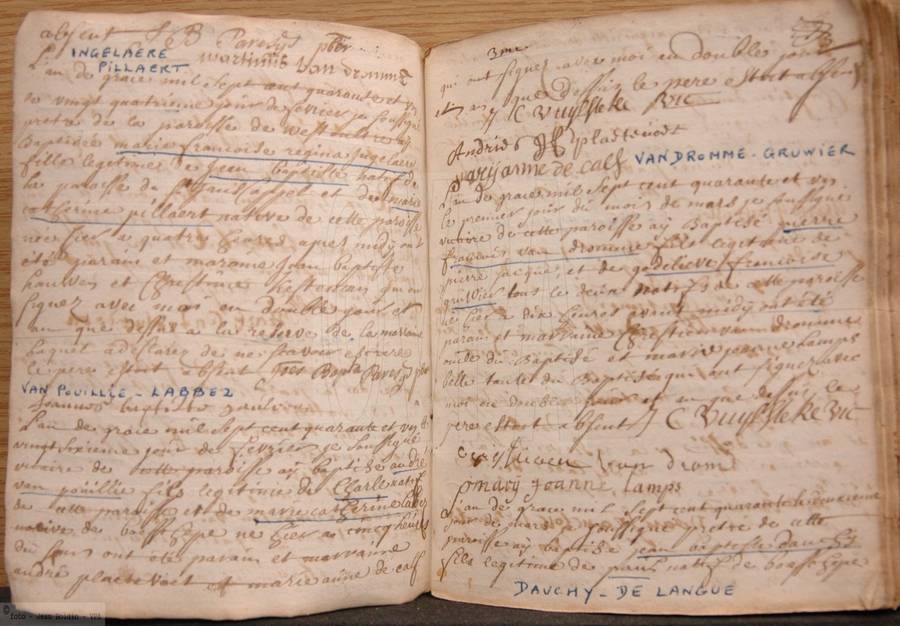 absent
Paresys pbr
martinus van dromme
INGELAERE
PILLAERT
L'an de grace mil sept cent quarante et un
le vingt quatrieme jour de fevrier je soussigné
pretre de la paroisse de westoutre ay
Baptisée marie francoise regina Ingelaere
fille legitime de jean baptiste natif de
la paroisse de et de marie
catherine pillaert native de cette paroisse
née hier a quatre heures apres midy ont
été parain et maraine Jean Baptiste
hauwen et Chrestine qui ont
signez avec moi en double jour et
an que dessus a la reserve de la maraine
laquel a declarez de ne scavoir escrire
le pere estoit absent Paresys pbr
VAN POUILLIE - LABBEZ
joannes baptista
L'an de grace mil sept cent quarante et un le
vingt sixieme jour de fevrier je soussigné
vicaire de cette paroisse ay baptisé andré
van pouillie fils legitime de Charle natif
de cette paroisse et de marie catherine labbez
native de boeschepe ne hier a cincq heures
du soir ont été parain et marraine
andré plaetevoet et marie anne de calf
3me
qui ont signez avec moi en double jour
et an que dessus le pere estoit absent
J C Vuylsteke Vic
Andries plaetevoet
marijanne de calf
VANDROMME - GRUWIER
L'an de grace mil sept cent quarante et un
le premier jour du mois de mars je soussigné
vicaire de cette paroisse ay Baptisé pierre
francois van dromme fils legitime de
pierre jacque et de godelieve francoise
gruwier tous les deux natifs de cette paroisse
né hier a dix heures avant midy ont été
parain et marraine Chrestien van dromme
oncle du Baptisé et marie jeanne Lamps
belle tante du Baptisé qui ont signez avec
moi en double jour et an que dessus le
pere estoit absent J C Vuylsteke Vic
van drom
marij Joanne Lamps
L'an de grace mil sept cent quarante
jour de mars je soussigné pretre de cette
paroisse ay baptisé jean baptiste dauchy
fils legitime de natif de boeschepe
DAUCHY - DE LANGUE
foto - Jean Boidin - VVF